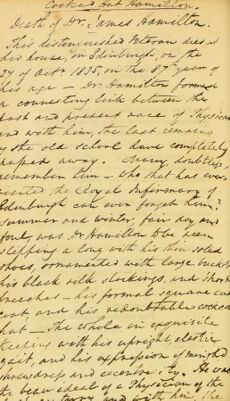 Cocked Hat Hamilton.
Death of Dr. James Hamilton.
This distinguished Veteran died at
his house, in Edinburgh, on the
27 of Octr 1835, on the 87th year of
his age – Dr Hamilton formed
a connecting link between the
past and present race of Physicians
and with him, the last remains
of the old school have completely
passed away. Many, doubtless,
remember him – who that has ever
visited the Royal Infirmary of
Edinburgh can ever forget him?
Summer and winter, fair day and
foul, was Dr Hamilton to be seen
stepping along with his thin soled
shoes, ornamented with large buckles
his black silk stockings, and short
breeches – his formal square cut
coat and his redoubtable cocked
hat – The whole in exquisite
keeping with his upright, elastic
gait, and his expression of mingled
shrewdness and eccentricity. He was
the beau ideal of a Physician of the
and with him, the